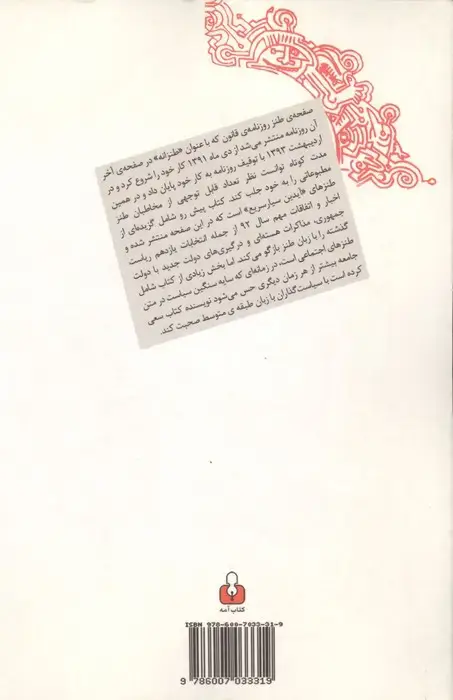 صفحه‌ی طنز روزنامه‌ی قانون که با عنوان «طنزانه» در صفحه‌ی آخر
آن روزنامه منتشر می‌شد از دی ماه ۱۳۹۱ کار خود را شروع کرد و در
اردیبهشت ۱۳۹۳ با توقیف روزنامه به کار خود پایان داد و در همین
مدت کوتاه توانست نظر تعداد قابل توجهی از مخاطبان طنز
مطبوعاتی را به خود جلب کند. کتاب پیش رو شامل گزیده‌ای از
طنزهای «آیدین سیارسریع» است که در این صفحه منتشر شده و
اخبار و اتفاقات مهم سال ۹۲ از جمله انتخابات یازدهم ریاست
جمهوری، مذاکرات هسته‌ای و درگیری‌های دولت جدید با دولت
گذشته را با زبان طنز بازگو می‌کند. اما بخش زیادی از کتاب شامل
طنزهای اجتماعی است، در زمانه‌ای که سایه سنگین سیاست در متن
جامعه بیشتر از هر زمان دیگری حس می‌شود نویسنده کتاب سعی
کرده است با سیاست‌گذاران با زبان طبقه ی متوسط صحبت کند.
کتاب آمه
ISBN 978-600-7033-31-9
9 786007 033319